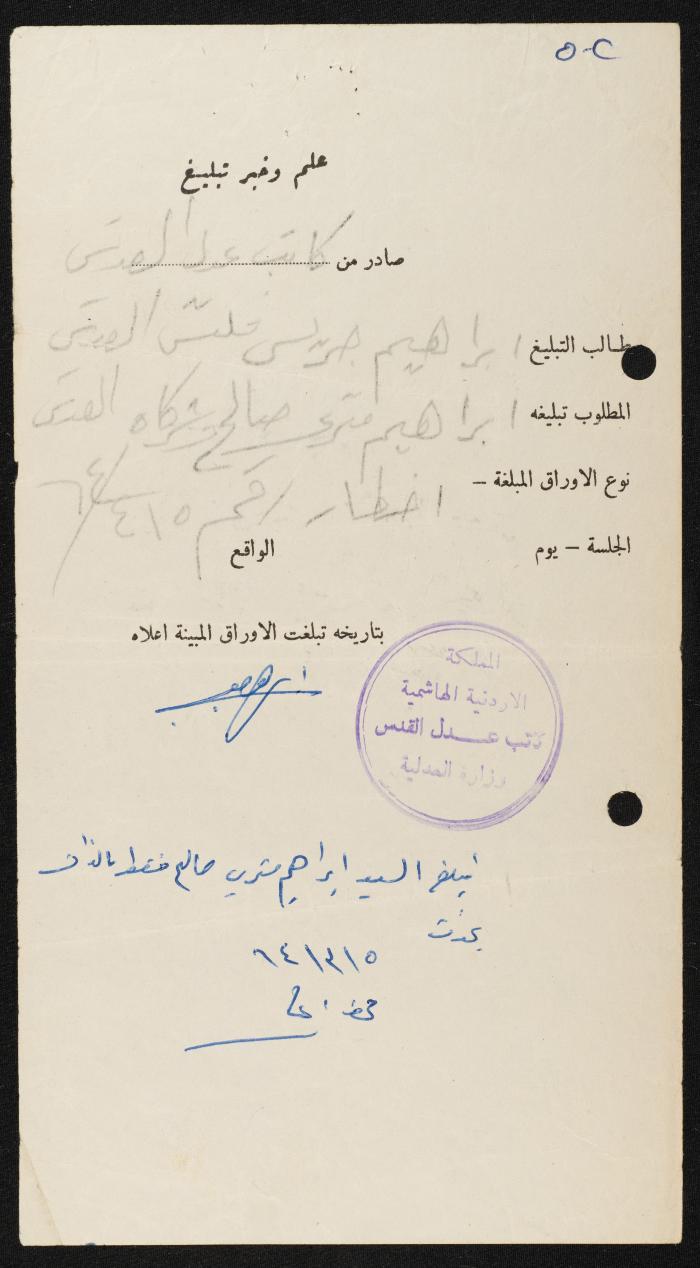 علم وخبر تبليغ
صادر من كاتب عدل القدس
طالب التبليغ ابراهيم جريس القدس
المطلوب تبليغه ابراهيم متري صالح وشركاه القدس
نوع الاوراق المبلغة – اخطار رقم ٤١٥/٦٤
الجلسة – يوم الواقع
بتاريخه تبلغت الاوراق المبينة اعلاه
المملكة
الاردنية الهاشمية
كاتب عدل القدس
وزارة العدلية
تبلغ السيد ابراهيم متري صالح فقط بالذات
٦٤/٣/١٥
محضر